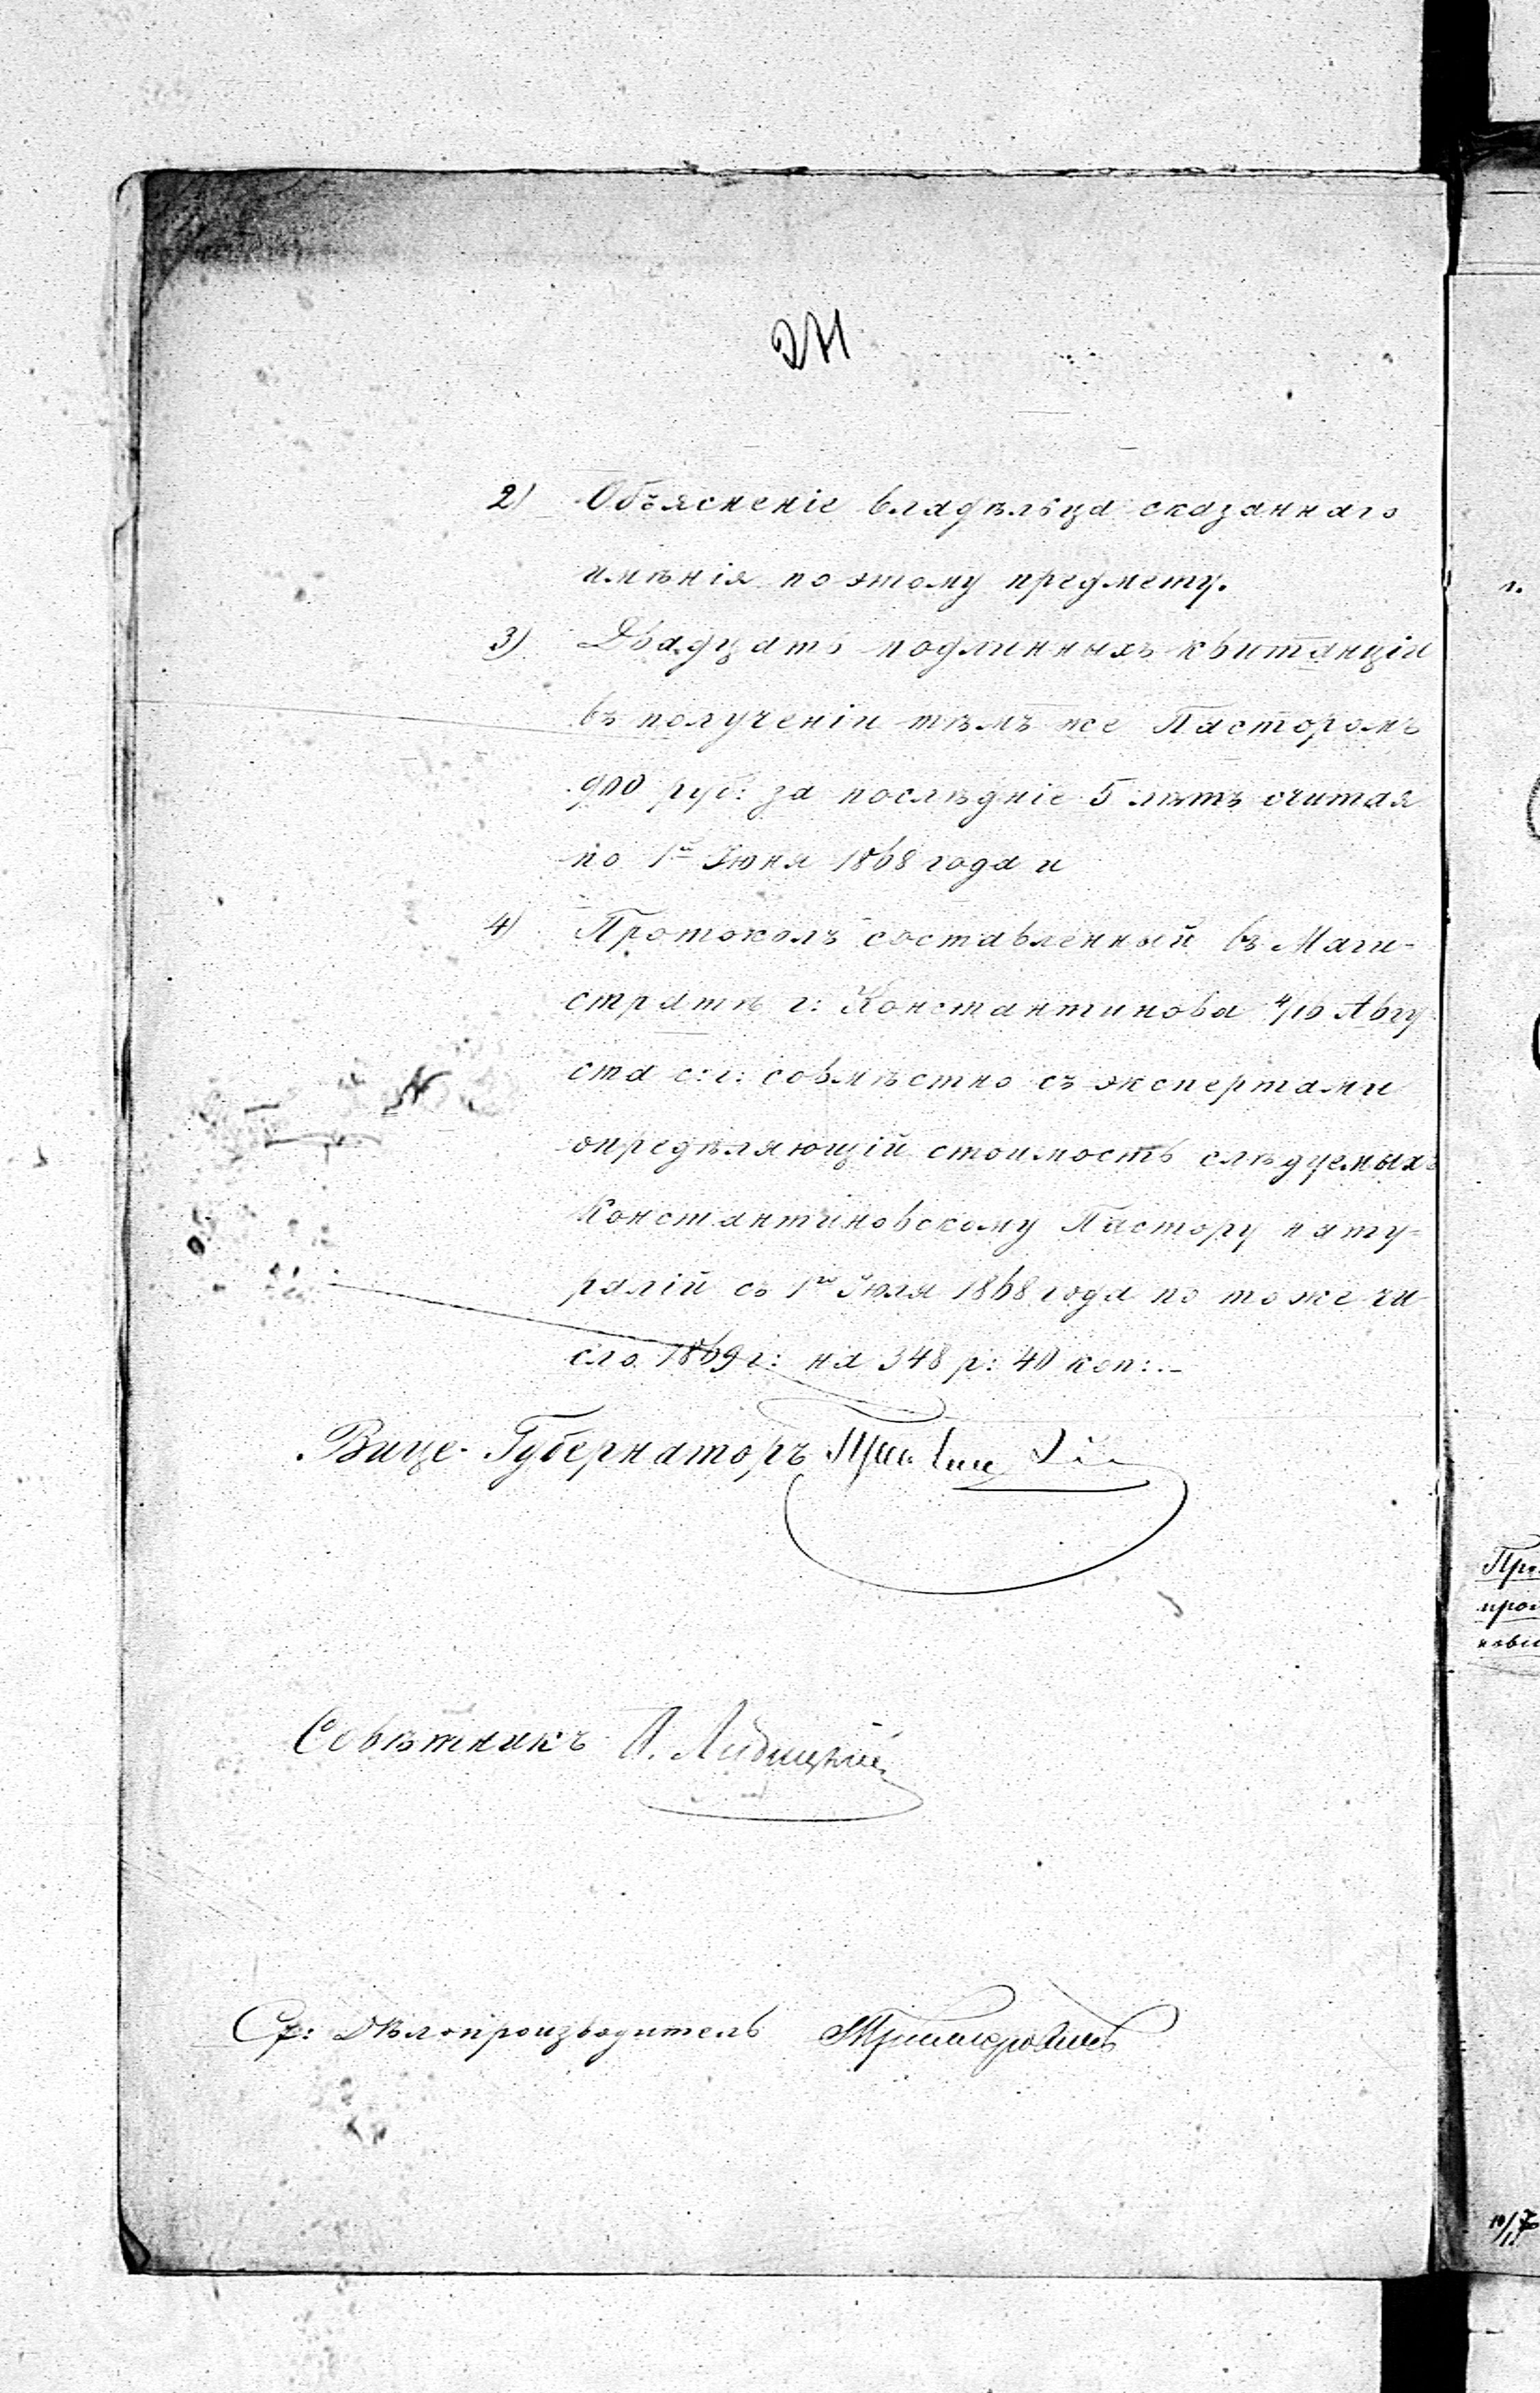 271
2) Объясненіе владѣльца сказаннаго
имѣнія по этому предмету.
3) Двадцать подлинныхъ квитанціи
въ полученіи тѣмъ же Пасторомъ
900 руб: за послѣдніе 5 лѣтъ считая
по 1е Іюня 1868 года и
4) Протоколъ составленный въ Маги-
стратѣ г: Константинова 4/16 Авгу
ста с: г: совмѣстно съ экспертами
опредѣляющій стоимость слѣдуемыхъ
Константиновскому Пастору нату-
ралій съ 1го Іюля 1868 года по тоже чи
сло 1869 г: на 348 р: 40 коп:
Вице-Губернаторъ
Совѣтникъ
Ср: Дѣлопроизводитель